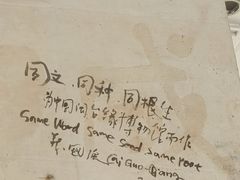 同文.同种.同根生
为中国闽台缘博物馆而作
Same Word Same Seed Same root
蔡國强 Cai Guo-Qiang